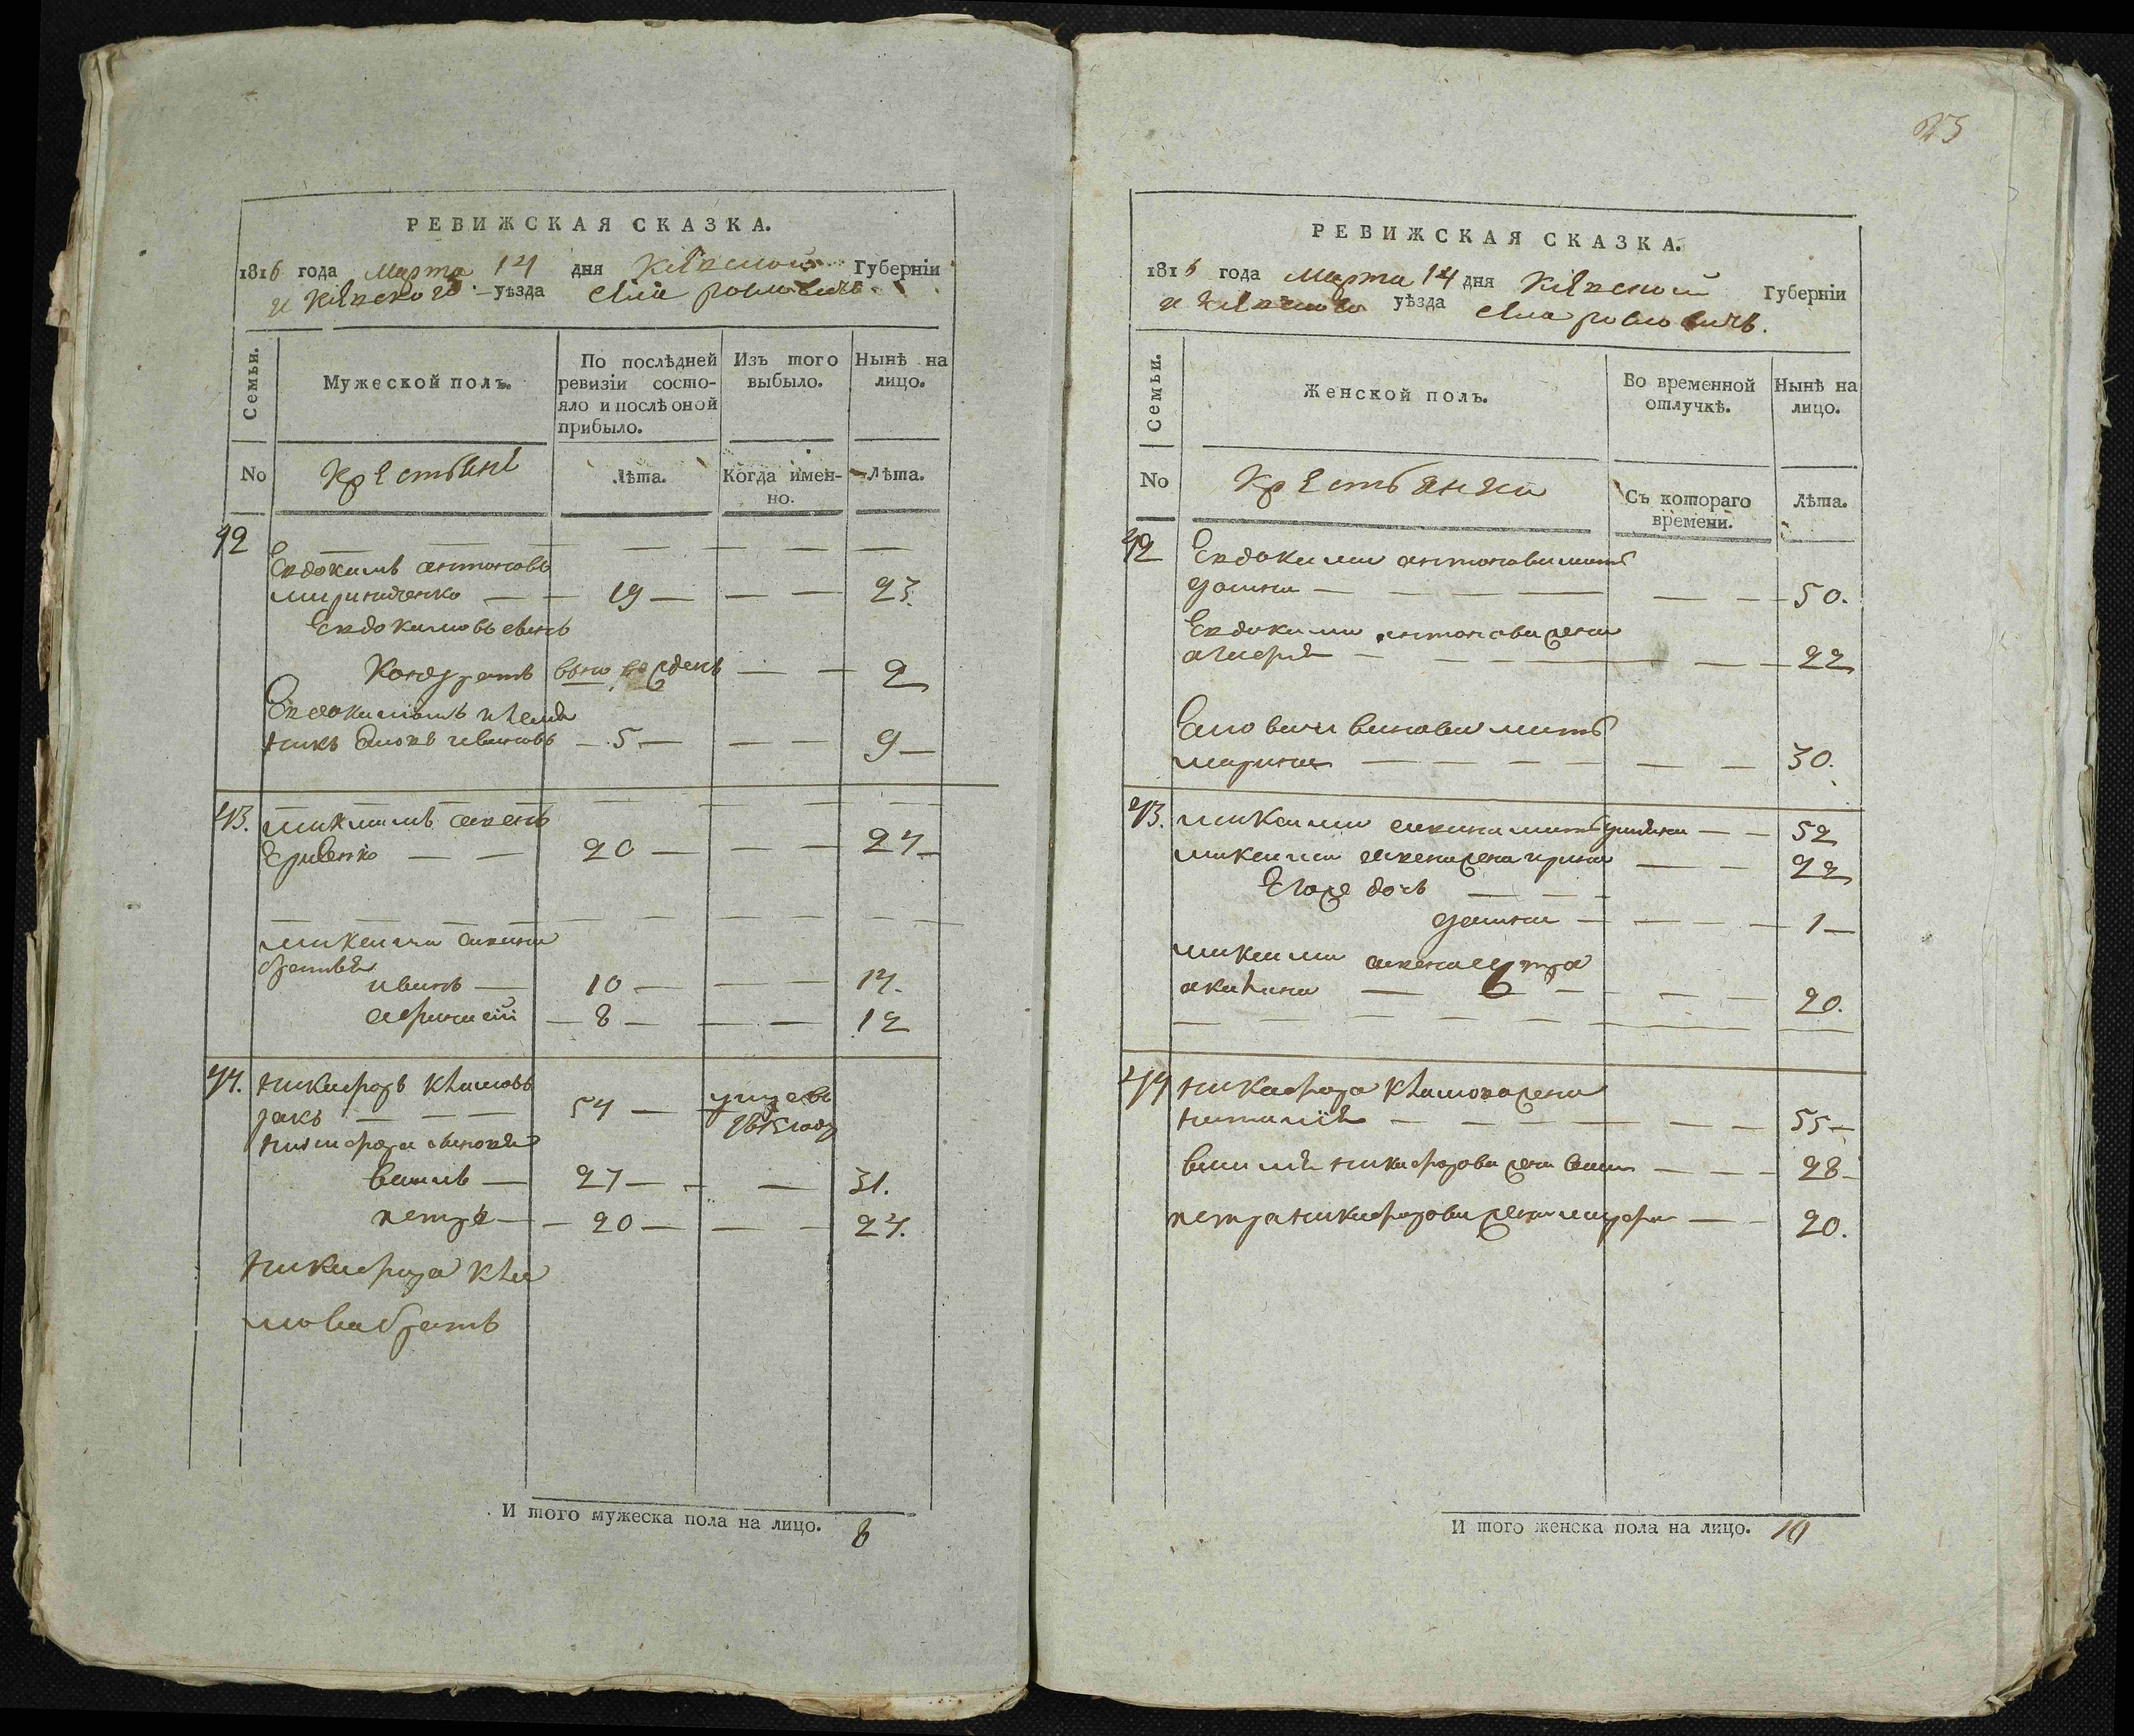 РЕВИЖСКАЯ СКАЗКА.
1816 года Марта 14 дня Кіевской Губерніи
и Кіевского уѣзда села
Семьи.
Мужеской полъ.
По послѣдней ревизіи состояло и послѣ оной прибыло.
Изъ того выбыло.
Нынѣ на лицо.
No
Крестьяне
Лѣта.
Когда именно.
Лѣта.
42
Евдокимъ антоновъ
мириниченко — — 19 — — — 23.
Евдокимовъ сынъ
Кондратъ вново рожденъ — — 2
Евдокимовъ племя
никъ ивановъ — 5 — — — 9 —
43.
— — 20 — — — 24 —
братья
иванъ — 10 — — — 14.
афанасий — 8 — — — 12
44. никифоръ климовъ
ракъ — — — 54 — умре въ
1815 году
никифора сыновя
василь — 27 — — — 31.
петръ — — 20 — — — 24.
никифора кли
мова братъ
И того мужеска пола на лицо. 8
23
РЕВИЖСКАЯ СКАЗКА.
1816 года Марта 14 дня Кіевской Губерніи
и Кіевского уѣзда села
Семьи.
Женской полъ.
Во временной отлучкѣ.
Нынѣ на лицо.
No
Крестьянки
Съ котораго времени.
Лѣта.
42 Евдокима антонова мать
— — — — 50.
Евдокима антонова жена
— — — 22
мать
марина — — — — 30.
43. мать — — 52
жена ирина — — 22
Его же дочь — —
— — — 1 —
сестра
акилина — — — — 20.
44 никифора климова жена
наталия — — — — 55 —
василя никифорова жена — — — 28 —
петра никифорова жена — — 20.
И того женска пола на лицо. 10